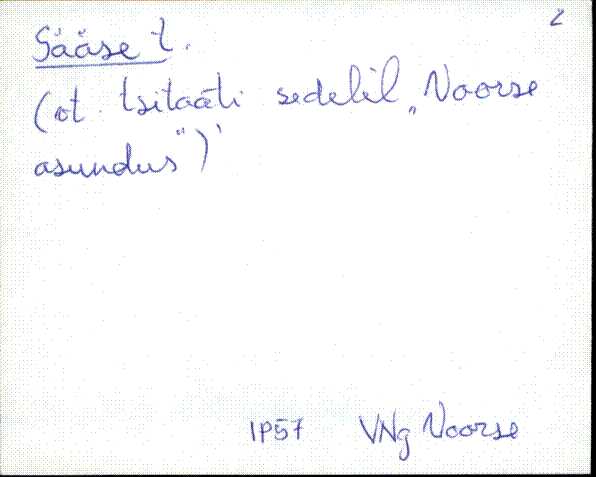 2
Sääse t.
(ot. tsitaati sedelil „Voorse
asundus")
IP57 VNg Voorse